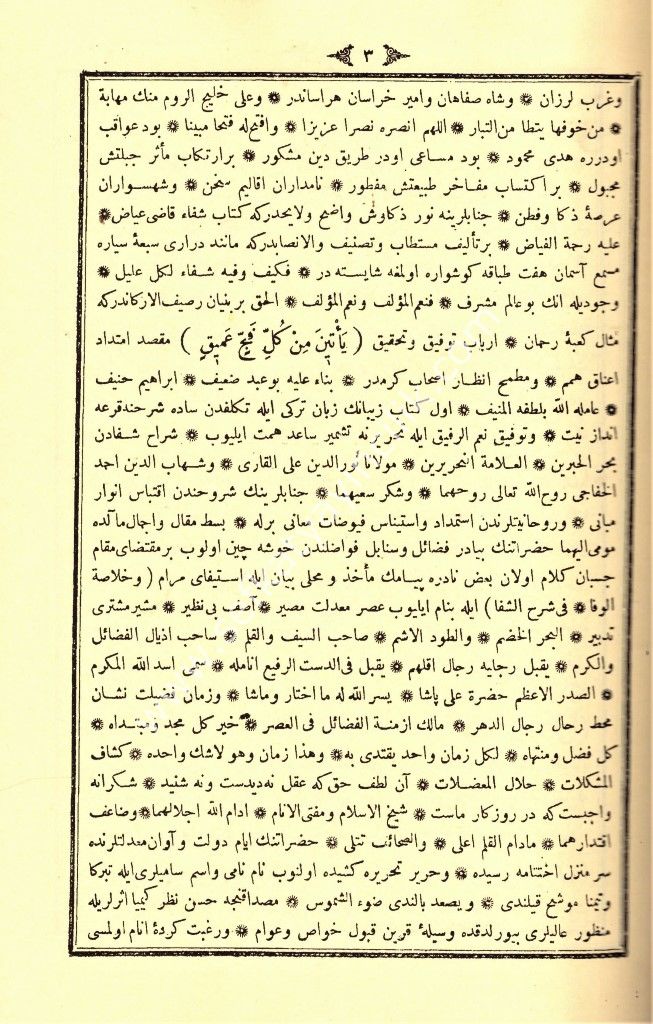 ٣
وغرب لرزان ❋ وشاه صفاهان وامير خراسان هراساندر ❋ وعلى خليج الروم منك مهابة
❋ من خوفها يتطا من التيار ❋ اللهم انصره نصرا عزيزا ❋ وافتح له فتحا مبينا ❋ بود عواقب
اودرره هدى محمود ❋ بود مساعى اودر طريق دين مشكور ❋ برارتكاب مأثر جبلتش
مجبول ❋ بر اكتساب مفاخر طبيعتش مفطور ❋ نامداران اقاليم سخن ❋ وشهسواران
عرصۀ ذكا وفطن ❋ جنابلرينه نور ذكاوش واضح ولايحدركه كتاب شفاء قاضى عياض ❋
عليه رحمة الفياض ❋ برتأليف مستطاب وتصنيف والانصابدركه مانند درارى سبعۀ سياره
مسمع آسمان هفت طباقه كوشواره اولمغه شايسته در ❋ فكيف وفيه شفاء لكل عليل ❋
وجوديله انك بو عالم مشرف ❋ فنعم المؤلف ونعم المؤلف ❋ الحق بر بنيان رصيف الاركاندركه
مثال كعبۀ رحمان ❋ ارباب توفيق وتحقيق ( يَأْتِينَ مِنْ كُلِّ فَجٍّ عَمِيقٍ ) مقصد امتداد
اعناق همم ❋ ومطمح انظار اصحاب كرمدر ❋ بناء عليه بو عبد ضعيف ❋ ابراهيم حنيف
❋ عامله الله بلطفه المنيف ❋ اول كتاب زيبانك زبان تركى ايله تكلفدن ساده شرحنه قرعه
انداز نيت ❋ وتوفيق نعم الرفيق ايله تحريرنه تشمير ساعد همت ايليوب ❋ شراح شفادن
بحر الحبرين ❋ العلامة النحريرين ❋ مولانا نورالدين على القارى ❋ وشهاب الدين احمد
الخفاجى روح الله تعالى روحهما ❋ وشكر سعيهما ❋ جنابلرينك شروحندن اقتباس انوار
مبانى ❋ وروحانيتلرندن استمداد واستيناس فيوضات معانى برله ❋ بسط مقال واجمال مآلده
مومى اليهما حضراتنك بيادر فضائل وسنابل فواضلندن خوشه چين اولوب بر مقتضاى مقام
چسبان كلام اولان بعض نادره پيسامك مأخذ و محلى بيان ايله استيفاى مرام ( وخلاصة
الوفا ❋ فى شرح الشفا ) ايله بنام ايليوب عصر معدلت مصير ❋ آصف بى نظير ❋ مشير مشترى
تدبير ❋ البحر الخضم ❋ والطود الاشم ❋ صاحب السيف والقلم ❋ ساحب اذيال الفضائل
والكرم ❋ يقبل رجايه رجال اقلهم ❋ يقبل فى الدست الرفيع انامله ❋ سمى اسد الله المكرم
❋ الصدر الاعظم حضرة على پاشا ❋ يسر الله له ما اختار وماشا ❋ وزمان فضيلت نشان
محط رحال رجال الدهر ❋ مالك ازمنة الفضائل فى العصر ❋ خير كل مجد ومبتداه ❋
كل فضل ومنتهاه ❋ لكل زمان واحد يقتدى به ❋ وهذا زمان وهو لاشك واحده ❋ كشاف
المشكلات ❋ حلال المعضلات ❋ آن لطف حق كه عقل نه ديدست ونه شنيد ❋ شكرانه
واجبست كه در روزكار ماست ❋ شيخ الاسلام ومفتى الانام ❋ ادام الله اجلالهما ❋ وضاعف
اقتدارهما ❋ مادام القلم اعلى ❋ والصحائف تتلى ❋ حضراتنك ايام دولت وآوان معدلتلرنده
سر منزل اختتامه رسيده ❋ وحرير تحريره كشيده اولنوب نام نامى واسم ساميلرى ايله تبركا
وتيمنا موشح قيلندى ❋ ويصعد بالندى ضوء الشموس ❋ مصداقنجه حسن نظر كيميا اثرلريله
منظور عاليلرى بيورلدقده وسيلۀ قرين قبول خواص وعوام ❋ ورغبت كردۀ انام اولمسى